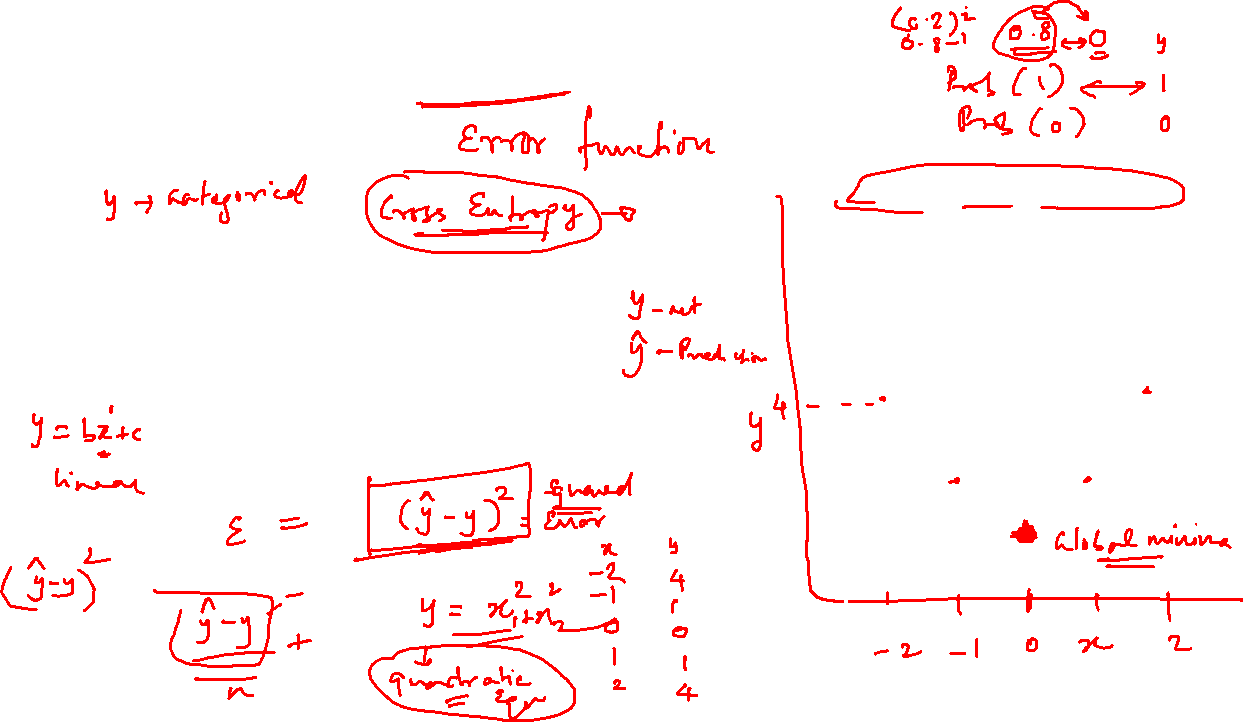 (0.2)²
0.8-1 0.8 ↔ 0 y
Prob (1) ↔ 1
Prob (0) 0
Error function
y → categorical Cross Entropy →
y - act
ŷ - Prediction
y = bx¹+c
linear
ε = (ŷ - y)² = Squared Error
(ŷ-y)²
ŷ - y - +
n
y = x₁²+x₂²
quadratic Eqn
x y
-2 4
-1 1
0 0
1 1
2 4
y 4
Global minima
-2 -1 0 x 2